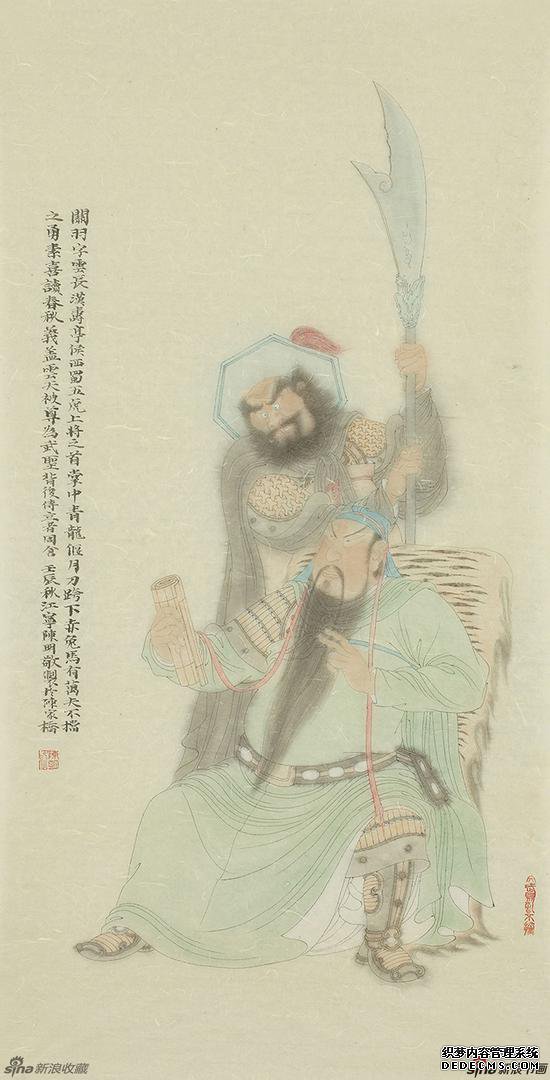 關羽字雲長漢壽亭侯西蜀五虎上將之首掌中青龍偃月刀跨下赤兔馬有萬夫不擋
之勇素喜讀春秋義蓋雲天被尊為武聖背後侍立者周倉 壬辰秋江寧陳明敬製於陳家橋
sina新浪收藏
织梦内容管理系统
DEDECMS.COM